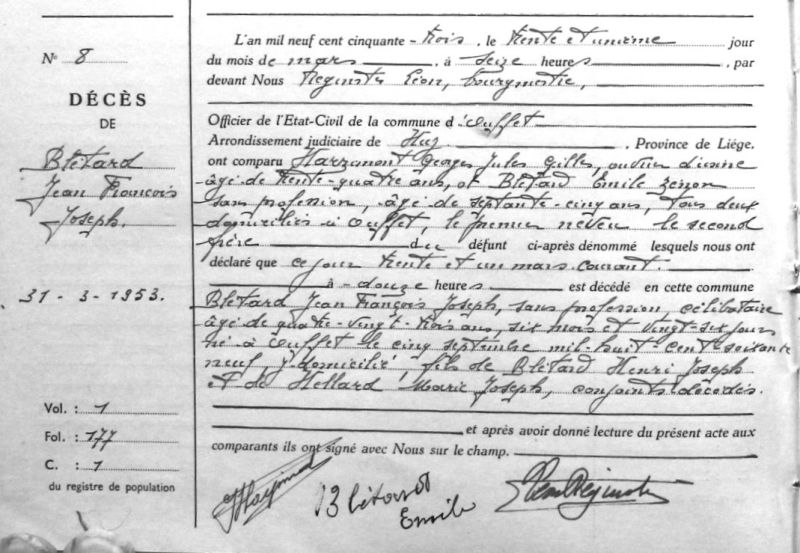 N° 8
DÉCÈS
DE
Blétard
Jean François
Joseph.
31 - 3 - 1953.
Vol. : 1
Fol. : 177
C. : 1
du registre de population
L'an mil neuf cent cinquante - trois, le trente et unième jour
du mois de mars, à seize heures, par
devant Nous Reginster Léon, bourgmestre,
Officier de l'Etat-Civil de la commune d'Ouffet
Arrondissement judiciaire de Huy, Province de Liége.
ont comparu Georges Jules Gilles, ouvrier d'usine
âgé de trente-quatre ans, et Blétard Emile Zénon
sans profession, âgé de septante-cinq ans, tous deux
domiciliés à Ouffet, le premier neveu le second
frère du défunt ci-après dénommé lesquels nous ont
déclaré que ce jour trente et un mars courant.
à douze heures est décédé en cette commune
Blétard Jean François Joseph, sans profession célibataire
âgé de quatre-vingt-trois ans, six mois et vingt-six jours
né à Ouffet le cinq septembre mil-huit cent soixante
neuf y domicilié, fils de Blétard Henri Joseph
et de Hellard Marie Joseph, conjoints décédés.
et après avoir donné lecture du présent acte aux
comparants ils ont signé avec Nous sur le champ.
Blétard
Emile